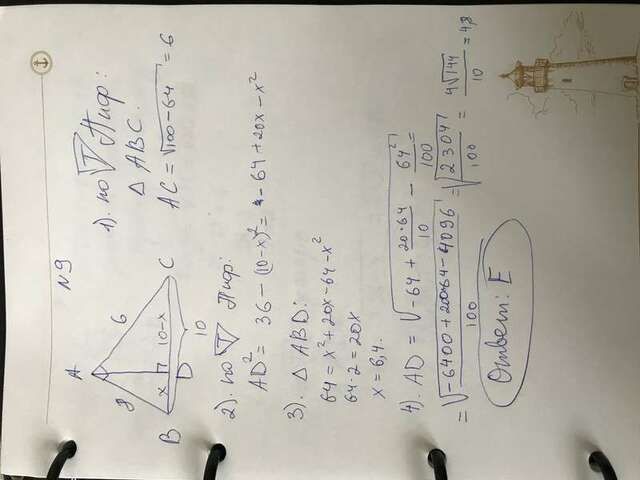 N9
A
8
6
x
10-x
B
D
C
10
1). по T Пиф:
△ ABC.
AC = √100-64 = 6
2). по T Пиф:
AD² = 36 - (10-x)² = -64 + 20x - x²
3). △ ABD:
64 = x² + 20x - 64 - x²
64·2 = 20x
x = 6,4.
4). AD = √-64 + 20·64/10 - 64²/100 =
= √-6400 + 200·64 - 4096/100 = √2304/100 = 4√144/10 = 4,8
Ответ: E